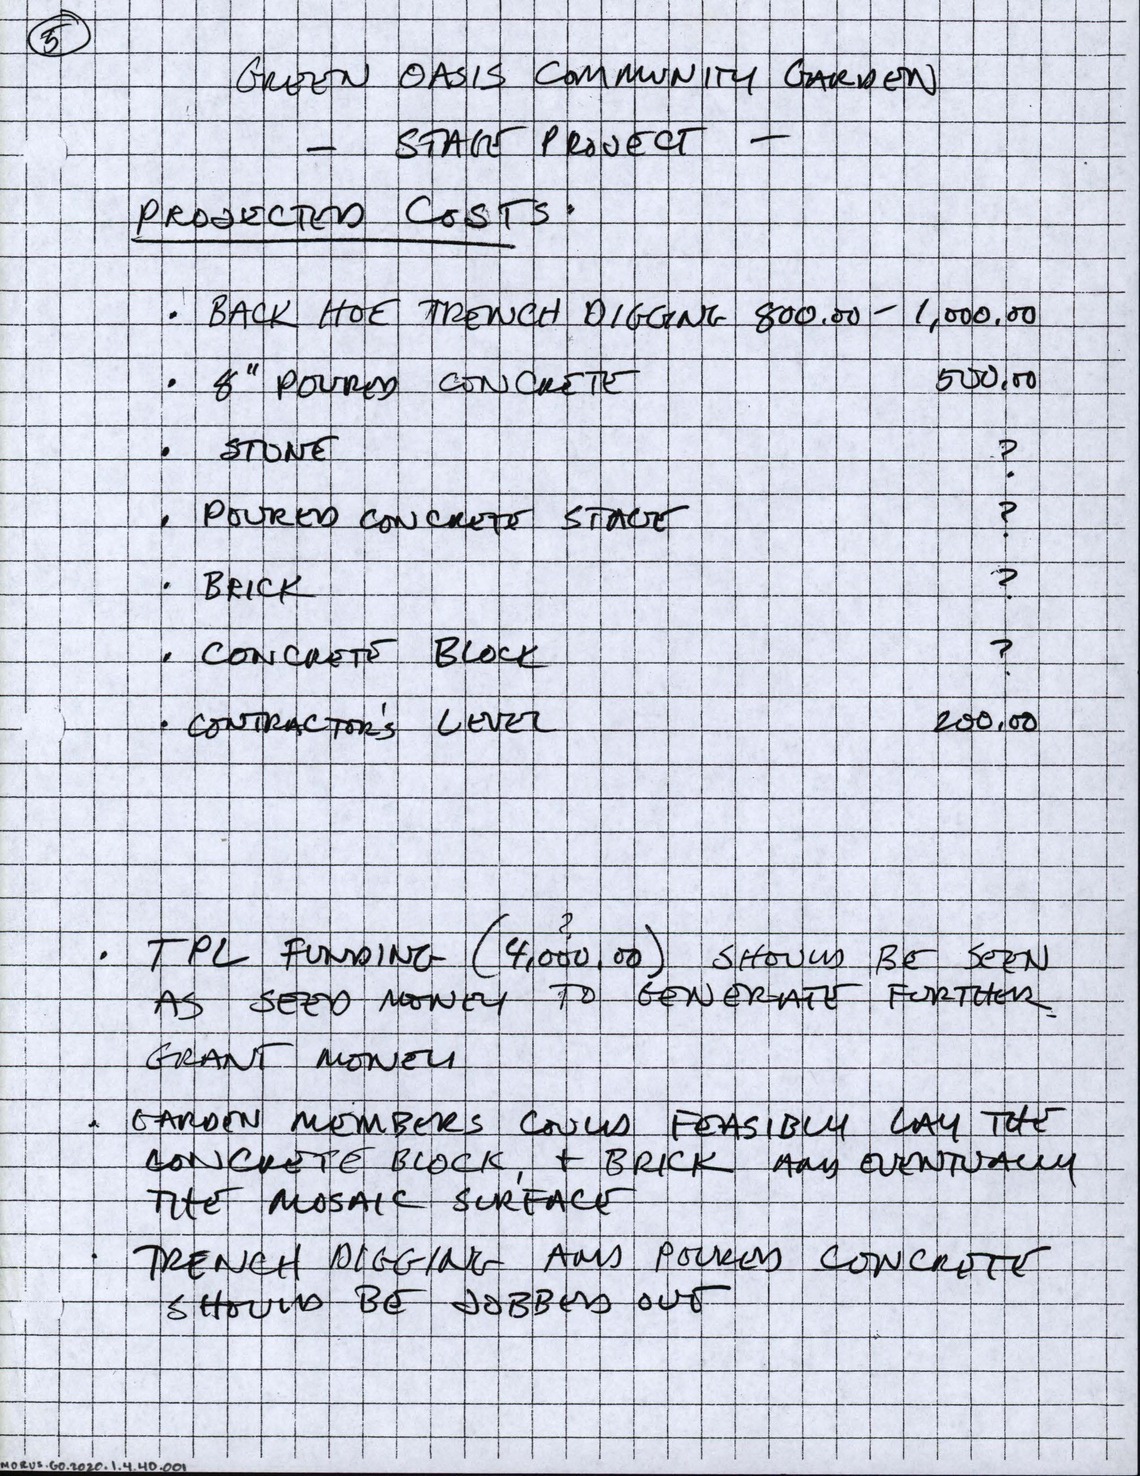 5
GREEN OASIS COMMUNITY GARDEN
— STAGE PROJECT —
PROJECTED COSTS:
• BACK HOE TRENCH DIGGING 800.00 – 1,000.00
• 8" POURED CONCRETE 500.00
• STONE ?
• POURED CONCRETE STAGE ?
• BRICK ?
• CONCRETE BLOCK ?
• CONTRACTOR'S LEVEL 200.00
?
• TPL FUNDING (4,000.00) SHOULD BE SEEN
AS SEED MONEY TO GENERATE FURTHER
GRANT MONEY
• GARDEN MEMBERS COULD FEASIBLY LAY THE
CONCRETE BLOCK, + BRICK AND EVENTUALLY
THE MOSAIC SURFACE
• TRENCH DIGGING AND POURED CONCRETE
SHOULD BE JOBBED OUT
MORUS.GO.2020.1.4.40.001